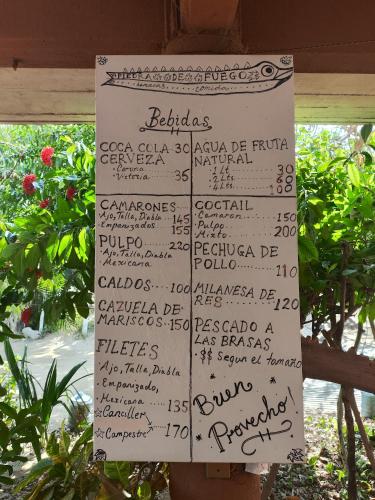 PIEDRA DE FUEGO
comida
Bebidas
COCA COLA 30
CERVEZA
· Corona
· Victoria ...... 35
AGUA DE FRUTA
NATURAL
· 1 Lt. ........ 30
· 2 Lts ........ 60
· 4 Lts. ....... 100
CAMARONES
Ajo, Talla, Diabla ... 145
Empanizados ... 155
PULPO ...... 220
· Ajo, Talla, Diabla
· Mexicana
CALDOS .... 100
CAZUELA DE
MARISCOS · 150
FILETES
Ajo, Talla, Diabla
· Empanizado,
· Mexicana ..... 135
☆Canciller
☆Campestre 170
COCTAIL
· Camaron ..... 150
· Pulpo
· Mixto ...... 200
PECHUGA DE
POLLO ....... 110
MILANESA DE
RES ......... 120
PESCADO A
LAS BRASAS
· $$ Segun el tamaño
Buen
Provecho!